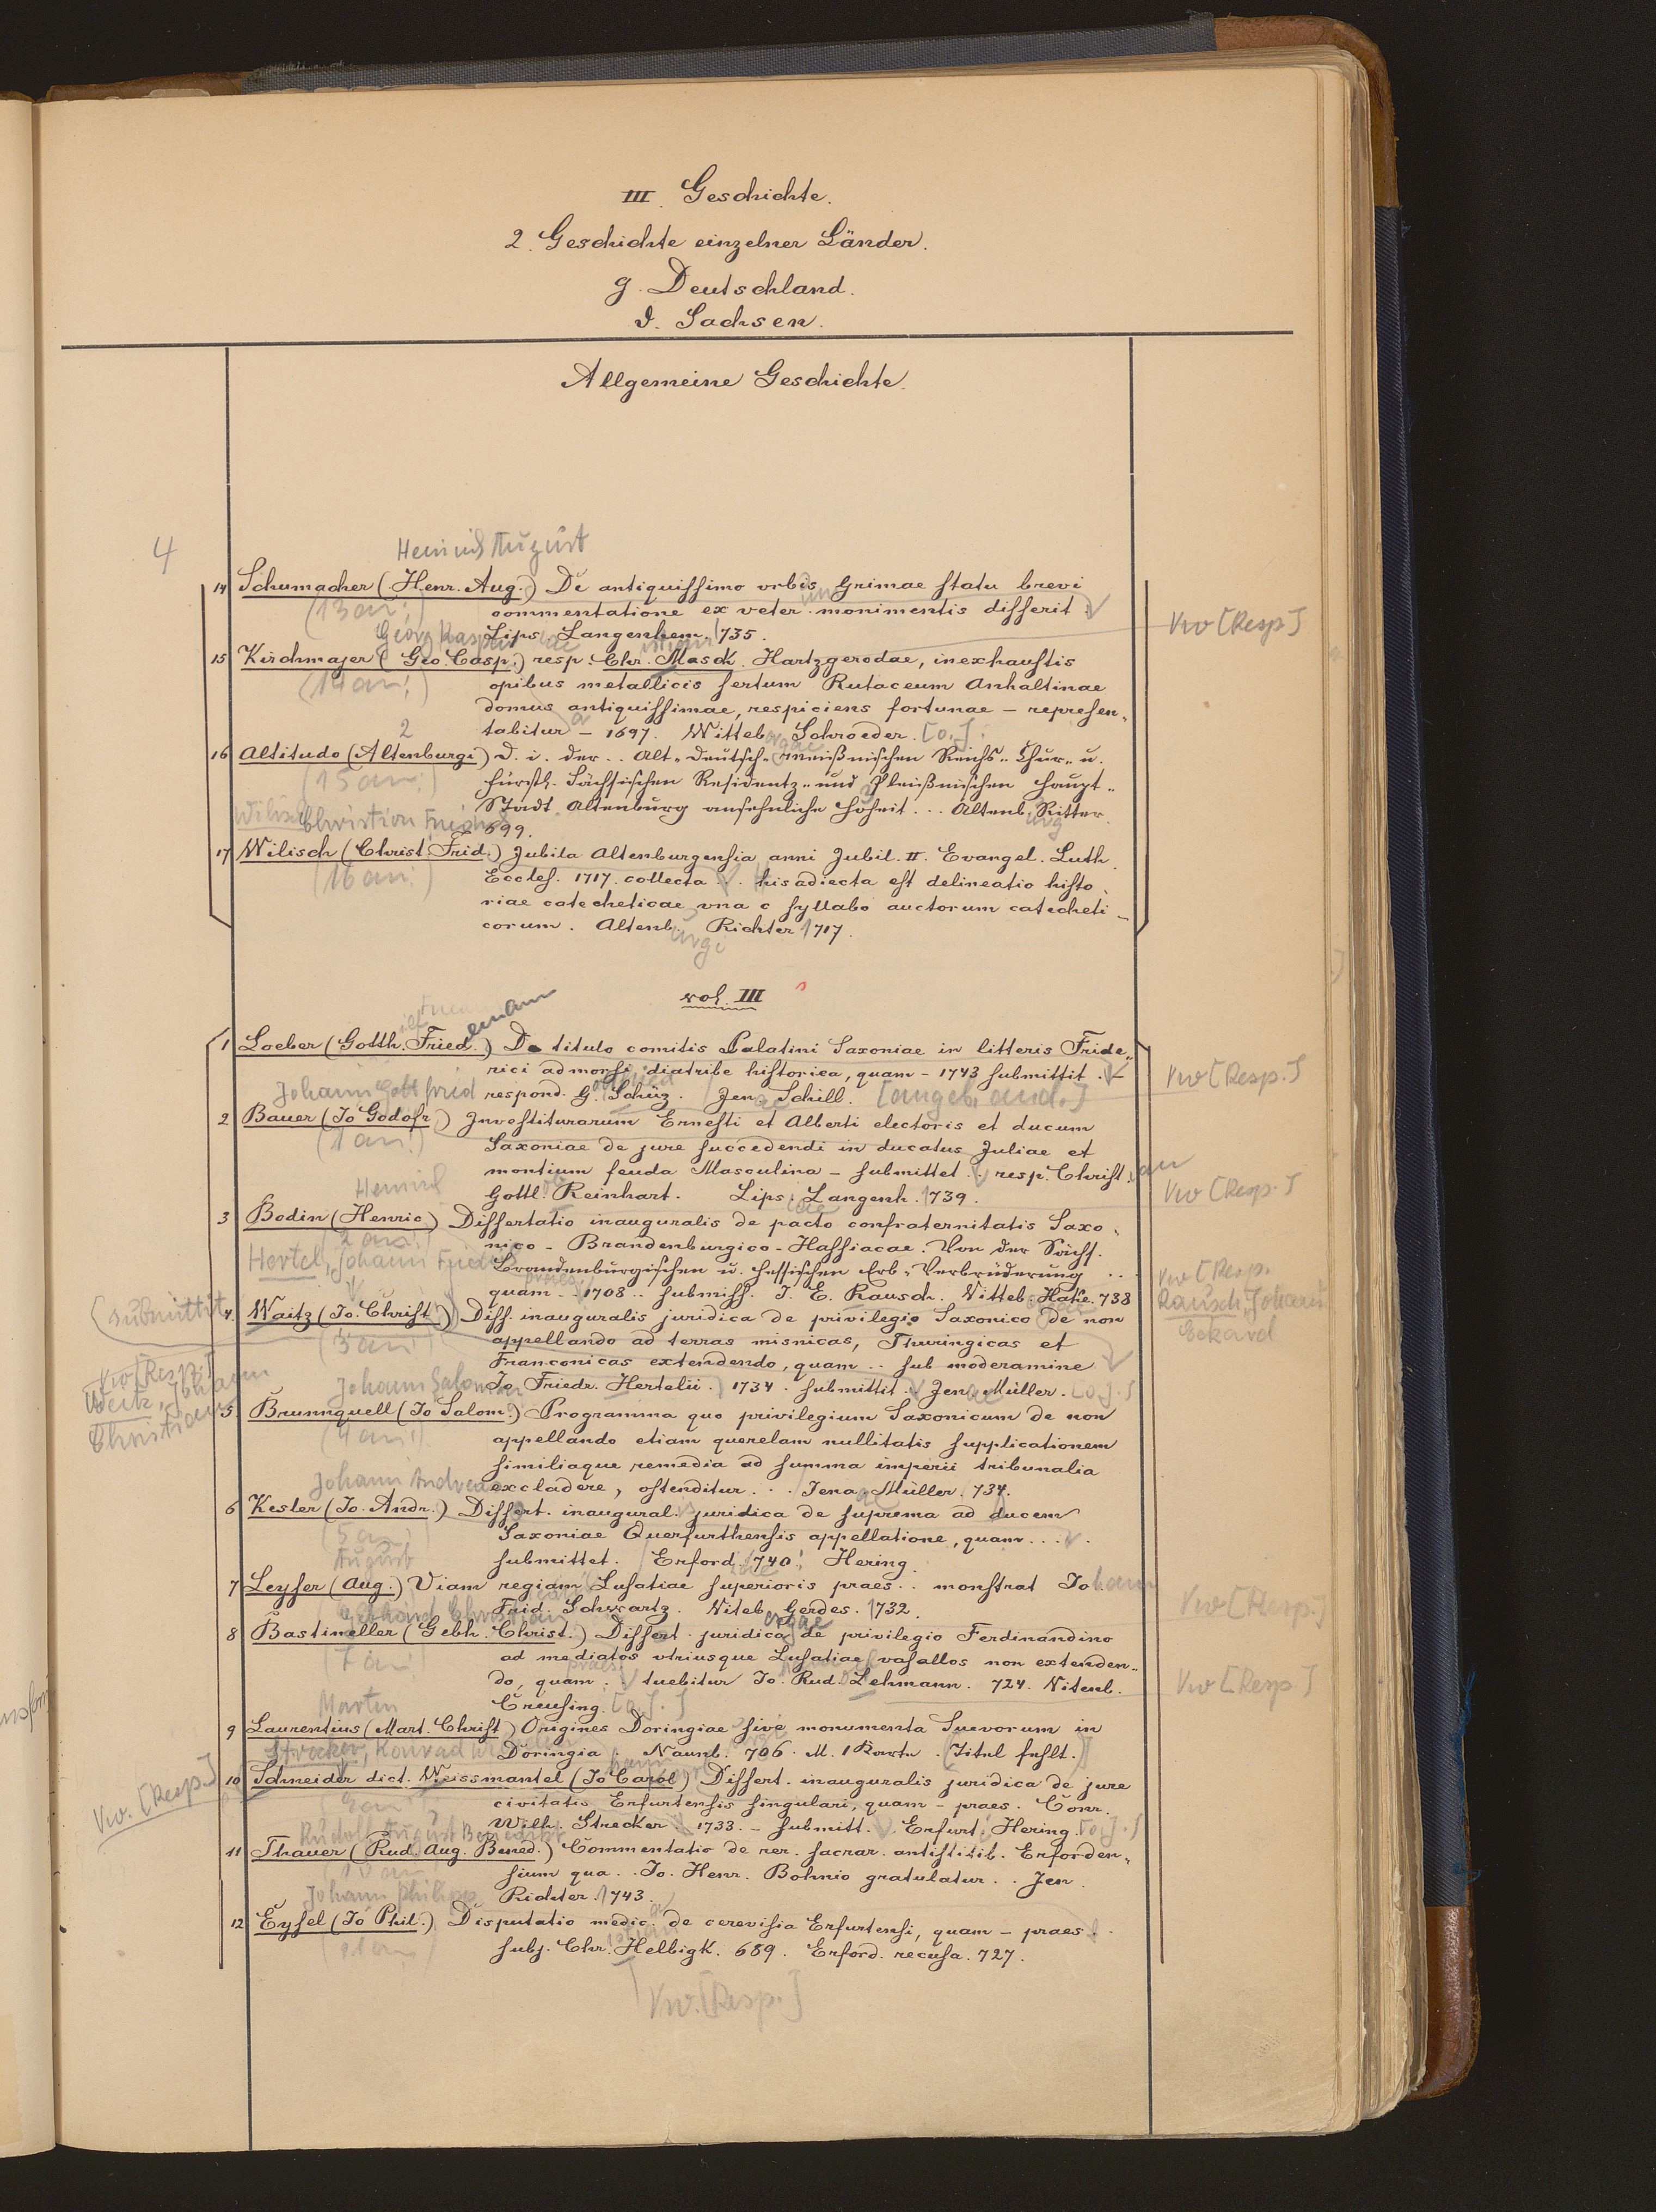 III. Geschichte.
2. Geschichte einzelner Länder.
g. Deutschland.
d. Sachsen.
Allgemeine Geschichte.
4
Heinrich August
14 Schumacher (Henr. Aug.) De antiquissimo vrbis Grimae statu brevi
(13 an:) commentatione ex veter. monimentis disserit
Lips. Langenhem. 1735.
Vw [Resp.]
Georg Kaspar
15 Kirchmajer (Geo. Casp.) resp. Chr. Mask. Hartzgerodae, inexhaustis
(14 an:) opibus metallicis sertum Rutaceum Anhaltinae
domus antiquissimae, respiciens fortunae – represen-
tabitur – 1697. Witteb. Schroeder. [o.J.]
2
16 Altitudo (Altenburgi) d. i. der .. Alt-Deutsch-Meißnischen Reichs- Chur- u.
(15 an:) fürstl. Sächsischen Residentz- und Pleißnischen Haupt-
Stadt Altenburg ansehnliche Hoheit ... Altenb. Ritter
699.
Wilisch Christian Friedrich
17 Wilisch (Christ. Frid.) Jubila Altenburgensia anni Jubil. II. Evangel. Luth.
(16 an:) Eccles. 1717. collecta .. his adiecta est delineatio histo-
riae catecheticae vna c syllabo auctorum catecheti-
corum. Altenb. Richter 1717.
vol. III
1 Loeber (Gotth. Fried.) De titulo comitis Palatini Saxoniae in litteris Fride-
rici admorsi diatribe historica, quam – 1743 submittit . –
respond. G. Schüz. Jen. Schill. [angeb. and.]
Vw [Resp.]
Johann Gottfried
2 Bauer (Jo Godofr.) Investiturarum Ernesti et Alberti electoris et ducum
(1 an:) Saxoniae de jure succedendi in ducatus Juliae et
montium feuda Masculina – submittet . resp. Christ.
Gottl. Reinhart. Lips. Langenh. 1739.
Vw [Resp.]
Heinrich
3 Bodin (Henric) Dissertatio inauguralis de pacto confraternitatis Saxo-
(2 an:) nico-Brandenburgico-Hassiacae. Von der Sächs.
Brandenburgischen u. Hessischen Erb-Verbrüderung ..
quam .. 1708 .. submiss. J. E. Rausch. Witteb. Halae. 738
Vw [Resp.
Rausch, Johann
Eckard
Hertel, Johann Friedrich
(submittit
4 Waitz (Jo. Christ.) Diss. inauguralis juridica de privilegio Saxonico de non
(3 an:) appellando ad terras misnicas, Thuringicas et
Franconicas extendendo, quam .. sub moderamine
Jo. Friedr. Hertelii. 1734. submittit .. Jen. Müller. [o.J.]
Vw [Resp.]
Weitz, Johann
Christian
Johann Salomon
5 Brunnquell (Jo Salom.) Programma quo privilegium Saxonicum de non
(4 an:) appellando etiam querelam nullitatis supplicationem
similiaque remedia ad summa imperii tribunalia
excladere, ostenditur. .. Jena. Müller. 734.
Johann Andreas
6 Kesler (Jo. Andr.) Dissert. inaugural. juridica de suprema ad ducem
(5 an:) Saxoniae Querfurthensis appellatione, quam ...
submittet. Erford. 740. Hering.
August
7 Leyser (Aug.) Viam regiam Lusatiae superioris praes .. monstrat Johann
Frid. Schwartz. Viteb. Gerdes. 1732.
Vw [Resp.]
Gebhard Christian
8 Bastineller (Gebh. Christ.) Dissert. juridica de privilegio Ferdinandino
(7 an:) ad mediatos vtriusque Lusatiae vasallos non extenden-
do, quam .. tuebitur Jo. Rud. Lehmann. 724. Vitenb.
Creusing. [o.J.]
Vw [Resp.]
Martin
9 Laurentius (Mart. Christ) Origines Doringiae sive monumenta Suevorum in
Doringia. Naumb. 706. M. 1 Karte. (Titel fehlt.)
Strecker, Konrad Wilhelm
10 Schneider dict. Weissmantel (Jo Carol) Dissert. inauguralis juridica de jure
(9 an:) civitatis Erfurtensis singulari, quam – praes. Conr.
Wilh. Strecker 1733. – submitt. Erfurt. Hering. [o.J.]
Vw. [Resp.]
Rudolf August Benedikt
11 Thauer (Rud. Aug. Bened.) Commentatio de rer. sacrar. antistitib. Erforden-
(10 an:) sium qua .. Jo. Henr. Bohnio gratulatur. .. Jen.
Richter. 1743.
Johann Philipp
12 Eysel (Jo Phil.) Disputatio medic. de cerevisia Erfurtensi, quam – praes.
(11 an:) subj. Chr. Helbigk. 689. Erford. recusa. 727.
Vw. [Resp.]